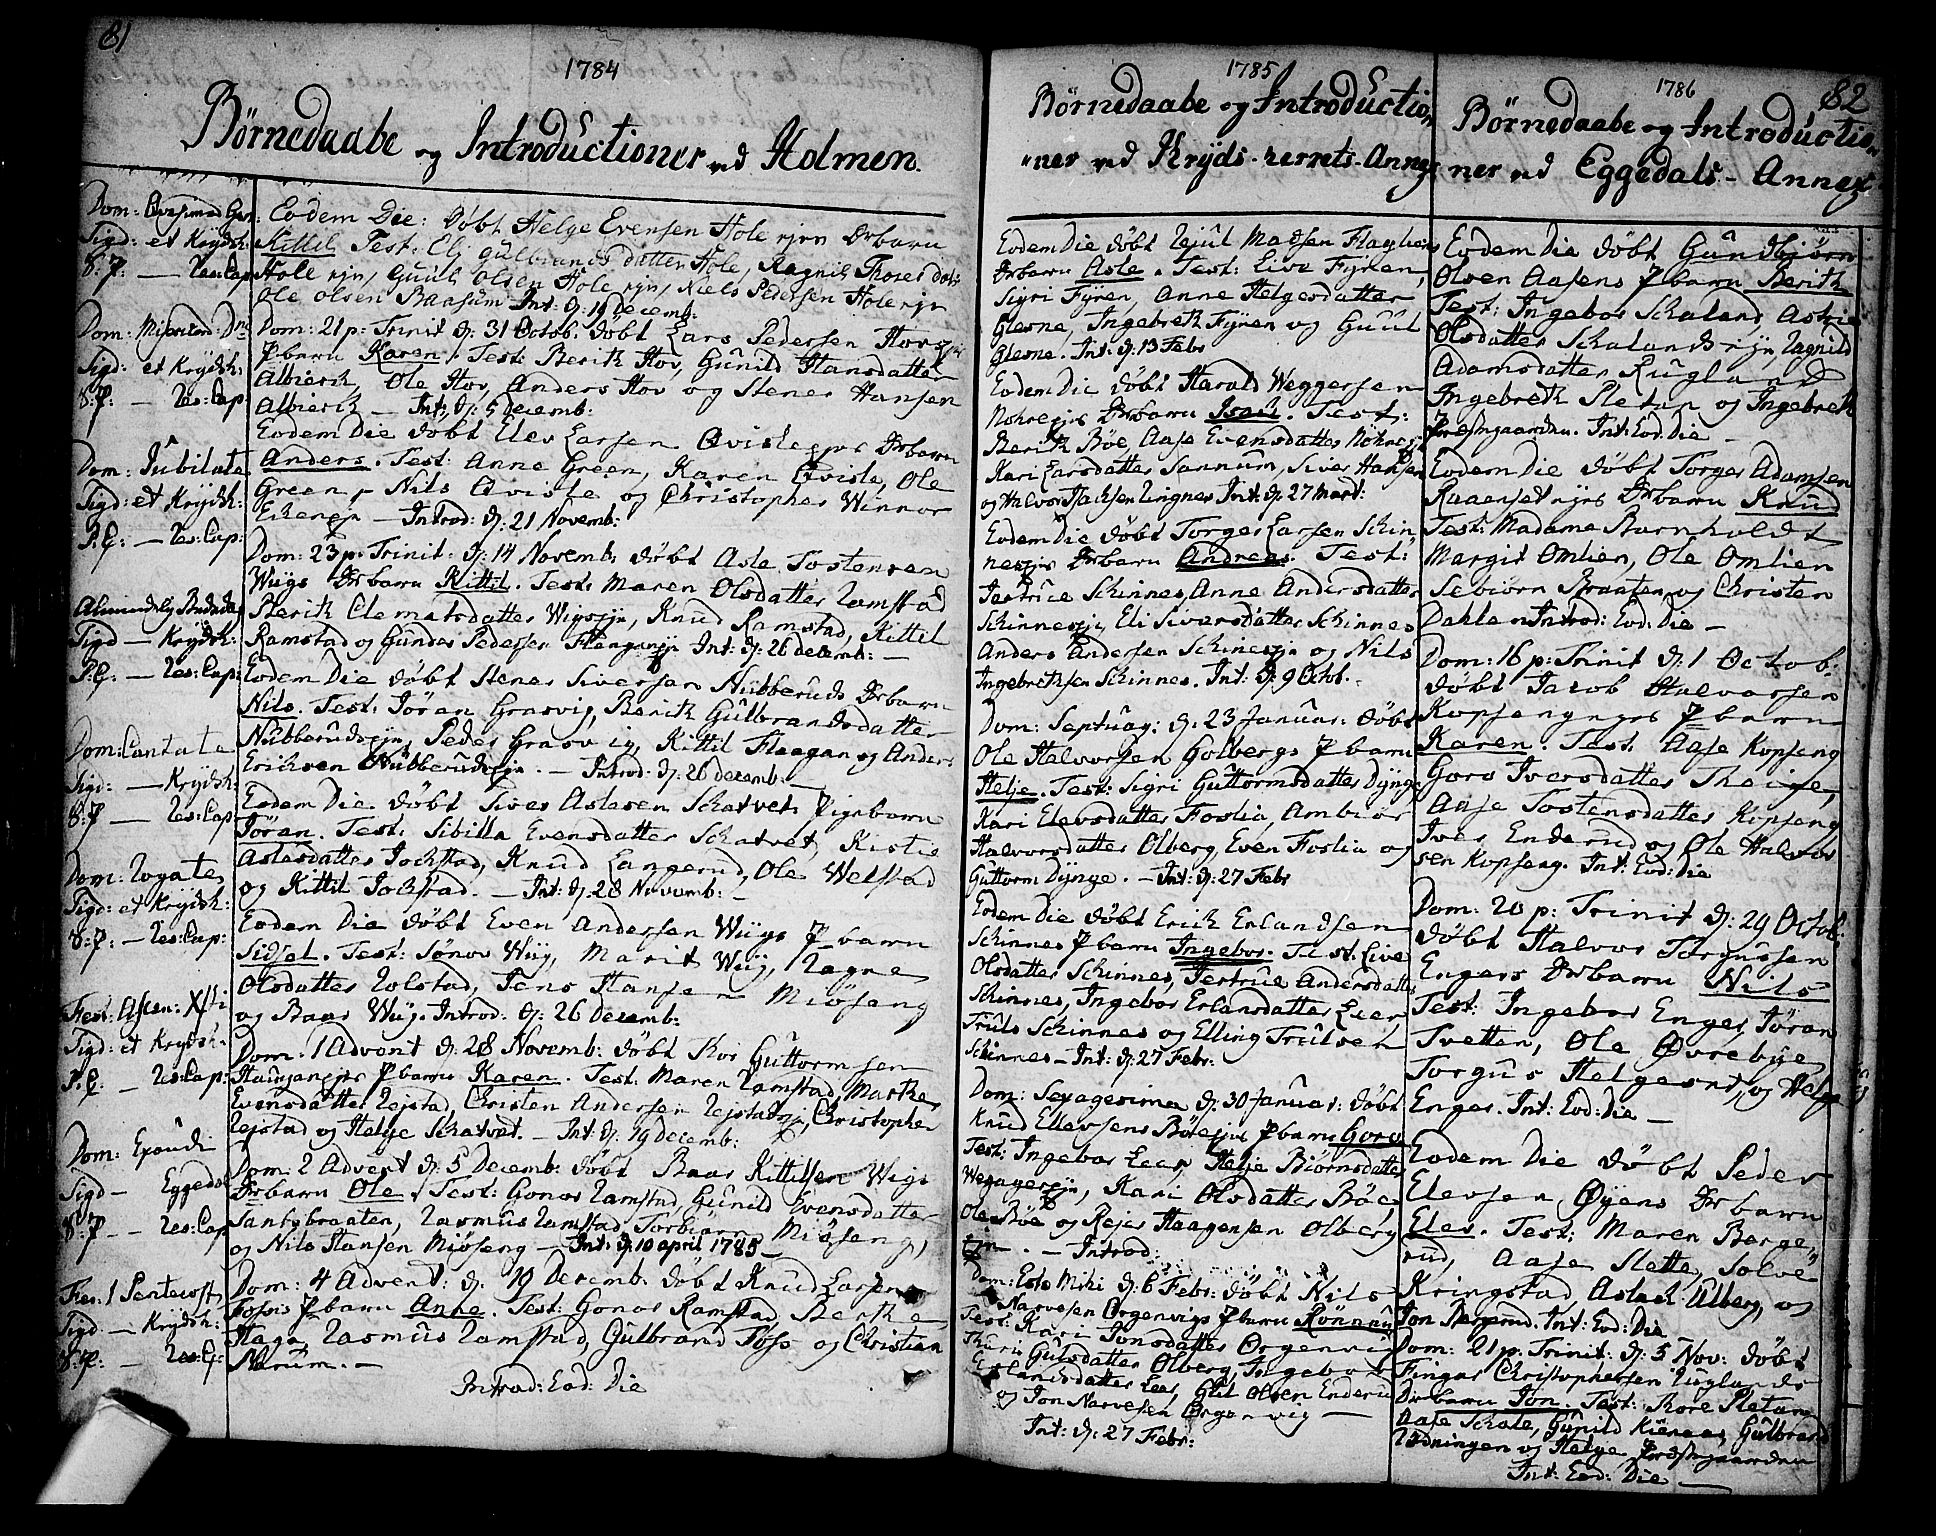 81
1784
Börnedaabe og Introductioner ved Holmen.
Dom: Qvasimod Gen:
Sigd: et Krydsh:
S: P: — Res: Cap:
Dom: Misericord: Dni
Sigd: et Krydsh:
S: P: — Res: Cap:
Dom: Jubilate
Sigd: et Krydsh:
P. E: — Res: Cap:
Almindelig Bededag
Sigd — Krydsh:
P. E: — Res: Cap:
Dom: Cantate
Sigd: — Krydsh:
S: P — Res: Cap:
Dom: Rogate
Sigd: et Krydsh:
S: P: — Res: Cap:
Fest: Ascen: Xsti
Sigd: et Krydsh:
P. E — Res: Cap:
Dom: Exaudi
Sigd — Eggedal
S: P — Res: Cap
Fer: 1 Pentecost
Sigd — Krydsh:
S: P. — Res: C:
Eodem Die: döbt Helge Evensen Hole ejn Drbarn
Kittil Test: Eli Gulbrandsdatter Hole, Ragnil Thoresdatter
Hole ejn, Guul Olsen Hole ejn, Niels Pedersen Hole ejn
Ole Olsen Baasum Int: d: 19 Decemb:
Dom: 21 p: Trinit d: 31 Octob: döbt Lars Pedersen Hovs
P barn Karen. Test: Berith Hov, Gunild Hansdatter
Albierk, Ole Hov, Anders Hov og Stener Hansen
Albierk — Int: d: 5 Decemb:
Eodem Die döbt Elev Larsen Qvisle ejrs Drbarn
Anders. Test: Anne Green, Karen Qvisle, Ole
Green, Nils Qvisle og Christopher Winnor
Eikenejn — Introd: d: 21 Novemb:
Dom: 23 p: Trinit: d: 14 Novemb: döbt Asle Tostensen
Wiigs Drbarn Kittil. Test: Maren Olsdatter Ramstad
Berith Clemetsdatter Wigsejn, Knud Ramstad, Kittil
Ramstad og Gunder Pedersen Hengenejn Int: d: 26 Decemb: —
Eodem Die döbt Stener Siversen Nubberuds Drbarn
Nils. Test: Jöran Grasvig, Berith Gulbrandsdatter
Nubberudsejn, Peder Grasvig, Kittil Flaagan og Anders
Eriksen Nubberudsejn. — Introd: d: 26 Decemb: —
Eodem Die döbt Siver Aslesen Schatvets Pigebarn
Jöran. Test: Sibilla Evensdatter Schatvet, Kistie
Aslesdatter Jochstad, Knud Langerud, Ole Welstad
og Kittil Jochstad. — Int: d: 28 Novemb:
Eodem Die döbt Even Andersen Wiigs P barn
Sidsel. Test: Sönov Wiig, Marit Wiig, Ragne
Olsdatter Rolstad, Jens Hansen Miöseng
og Baar Wiig. Introd: d: 26 Decemb:
Dom: 1 Advent d: 28 Novemb: döbt Guttormsen
P barn Karen. Test: Maren Ramstad, Marthe
Evensdatter Rejstad, Christen Andersen Rejstadejn, Christopher
Rejstad og Helge Schatvet. — Int: d: 19 Decemb:
Dom: 2 Advent d: 5 Decemb: döbt Baar Kittilsen Wigs
Drbarn Ole. Test: Gonor Ramstad, Gunild Evensdatter
Santybraaten, Rasmus Ramstad, Torbiörn Miöseng,
og Nils Hansen Miöseng — Int: d: 10 april 1785 —
Dom: 4 Advent: d: 19 Decemb: döbt Knud Larsen
Fosnes P barn Anne. Test: Gonor Ramstad, Berthe
Haga, Rasmus Ramstad, Gulbrand Foss og Christian
Mrum. —
Introd: Eod: Die
1785
Börnedaabe og Introductio„
„ner ved Kryds-herrets-Annex
Eodem Die döbt Kejul Madsen Flaglien
Drbarn Asle. Test: Live Fyren,
Sigri Fyren, Anne Helgesdatter
Glesne, Ingebreth Fyren og Guul
Glesne. Int: d: 13 Febr
Eodem Die döbt Harald Weggersen
Nohrejrs Drbarn Test:
Berith Böe, Aase Evensdatter
Kari Larsdatter Sannum, Siver Hansen
og Halvor Ringnes Int: d: 27 Mart:
Eodem Die döbt Torger Larsen Schin„
nesejrs Drbarn Andreas. Test:
Jertrue Schinnes, Anne Andersdatter
Schinnesejn, Eli Siversdatter Schinnes
Anders Andersen Schinesejn og Nils
Ingebrethsen Schinnes. Int: d: 9 Octob. —
Dom: Septuag: d: 23 Januar: döbt
Ole Halvorsen Golbergs P barn
Helje. Test: Sigri Guttormsdatter Dynge
Kari Elevsdatter Foslia, Ambiör
Halvorsdatter Olberg, Even Foslia og
Guttorm Dynge. — Int: d: 27 Febr
Eodem Die döbt Erich Erlandsen
Schinnes P barn Ingebor. Test: Live
Olsdatter Schinnes, Jertrue Andersdatter
Schinnes, Ingebor Erlansdatter Leer
Truls Schinnes og Elling Trulsen
Schinnes — Int: d: 27 Febr:
Dom: Sexagesima d: 30 Januar: döbt
Knud Ellevsens Böeejrs P barn Goro
Test: Ingebor Leer, Helje Biörnsdatter
Kari Olsdatter Böe
Ole Böe og Rejer Haagensen Olberg
ejn. — Introd:
Dom: Esto Mihi d: 6 Febr: döbt Nils
Narvesen Örgenvigs P barn Rönnau
Test: Kari Jonsdatter Örgenvig
Thurie Gulsdatter Olberg, Ingebor
Erlandsdatter Leer, Guul Olsen Enderu
og Jon Narvesen Örgenvig —
Int: d: 27 Febr:
82
1786
Börnedaabe og Introductio„
ner ved Eggedals-Annex
Eodem Die döbt Gundbjörn
Olsen Aasens P barn Berith
Test: Ingebor Schaland, Astrie
Olsdatter Schalandsejn, Ragnild
Adamsdatter Rugland
Ingebreth Pletan og Ingebreth
Præstgaarden. Int: Eod: Die —
Eodem Die döbt Torger Adamsen
Raaensetejrs Drbarn Knud
Test: Madame Barnholdt
Margit Omlien, Ole Omlien
Sebiörn Braaten og Christen
Dahlen Introd: Eod: Die —
Dom: 16 p: Trinit d: 1 Octob:
döbt Jacob Halvorsen
Kopsengejrs P barn
Karen. Test: Aase Kopseng
Goro Iversdatter Theige,
Aase Tostensdatter Kopseng
Iver Enderud og Ole Halvor„
sen Kopseng. Int: Eod: Die
Dom: 20 p: Trinit d: 29 Octob:
döbt Halvor Torgussen
Engers Drbarn Nils
Test: Ingebor Enger, Jöran
Tvetten, Ole Övrebye
Torgus Helgesrt, og Helge
Enger. Int: Eod: Die —
Eodem Die döbt Peder
Elevsen Öyens Drbarn
Elev. Test: Maren Berge„
rud, Aase Slette, Solve
Kringstad, Aslach Ulberg, og
Jon Int: Eod: Die
Dom: 21 p: Trinit: d: 5 Nov: döbt
Fingar Christophersen Ruglands
Drbarn Jon. Test: Thore Pletan
Aase Schale, Gunild Kiennaas, Gulbrand
Redningen og Helge Præstgaarden
Int: Eod: Die —